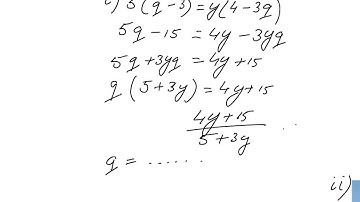 i) 5(q-3)=y(4-3q)
5q-15=4y-3yq
5q+3yq=4y+15
q(5+3y)=4y+15
4y+15
5+3y
q=......
ii)